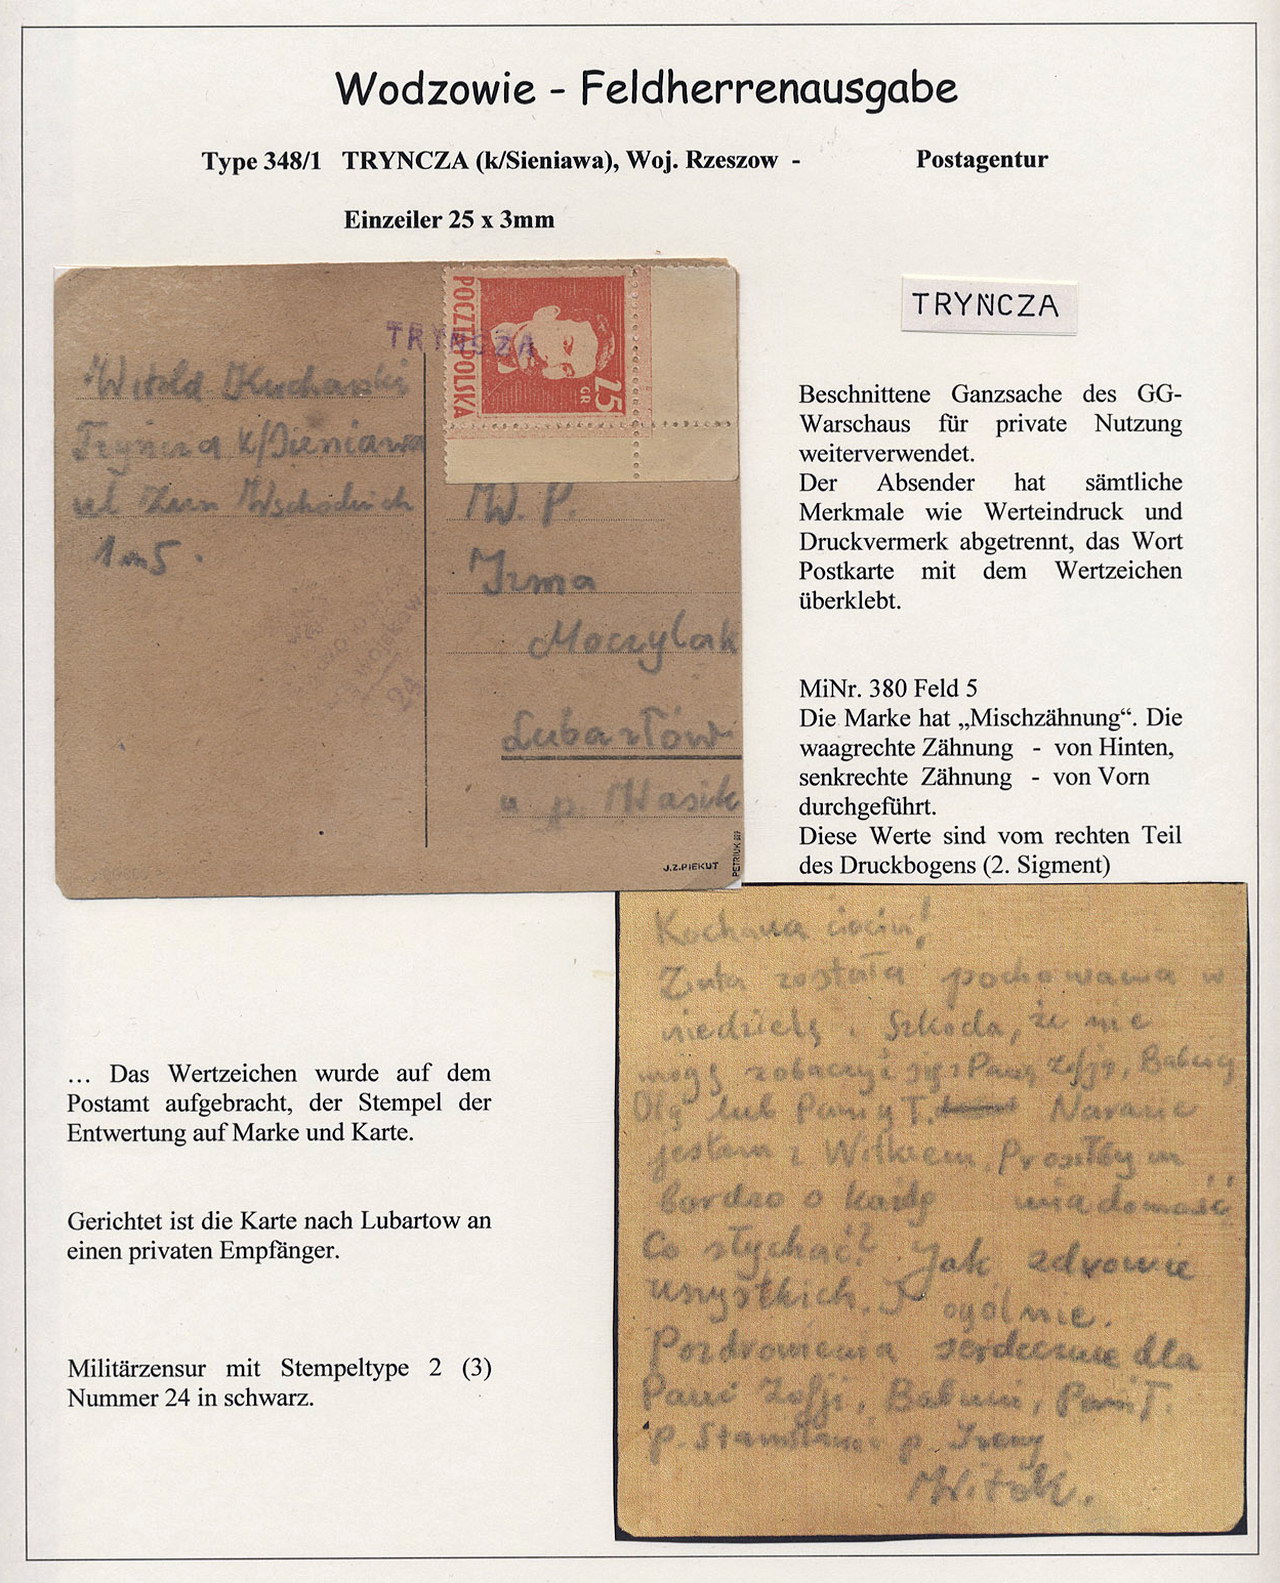 Wodzowie - Feldherrenausgabe
Type 348/1 TRYNCZA (k/Sieniawa), Woj. Rzeszow - Postagentur
Einzeiler 25 x 3mm
TRYNCZA
POCZTA POLSKA
25
GR
TRYNCZA
Witold Kucharski
Tryńcza k/Sieniawa
ul
1 m 5.
M. P.
Irma
Moczylak
Lubartów
u. p. Wasik
24
J.Z.PIEKUT
PETRIUK
Beschnittene Ganzsache des GG-
Warschaus für private Nutzung
weiterverwendet.
Der Absender hat sämtliche
Merkmale wie Werteindruck und
Druckvermerk abgetrennt, das Wort
Postkarte mit dem Wertzeichen
überklebt.
MiNr. 380 Feld 5
Die Marke hat „Mischzähnung“. Die
waagrechte Zähnung - von Hinten,
senkrechte Zähnung - von Vorn
durchgeführt.
Diese Werte sind vom rechten Teil
des Druckbogens (2. Sigment)
... Das Wertzeichen wurde auf dem
Postamt aufgebracht, der Stempel der
Entwertung auf Marke und Karte.
Gerichtet ist die Karte nach Lubartow an
einen privaten Empfänger.
Militärzensur mit Stempeltype 2 (3)
Nummer 24 in schwarz.
Kochana ciociu!
została pochowana w
niedzielę. Szkoda, że nie
mogę zobaczyć się z Panią Zofją, Babcią
Olą lub Panią T. Narazie
jestem z Witkiem. Prosiłbym
bardzo o każdą wiadomość
Co słychać? Jak zdrowie
wszystkich. I ogólnie.
Pozdrowienia serdeczne dla
Pani Zofji, Babuni, Pani T.
p. p. Ireny
Witek.